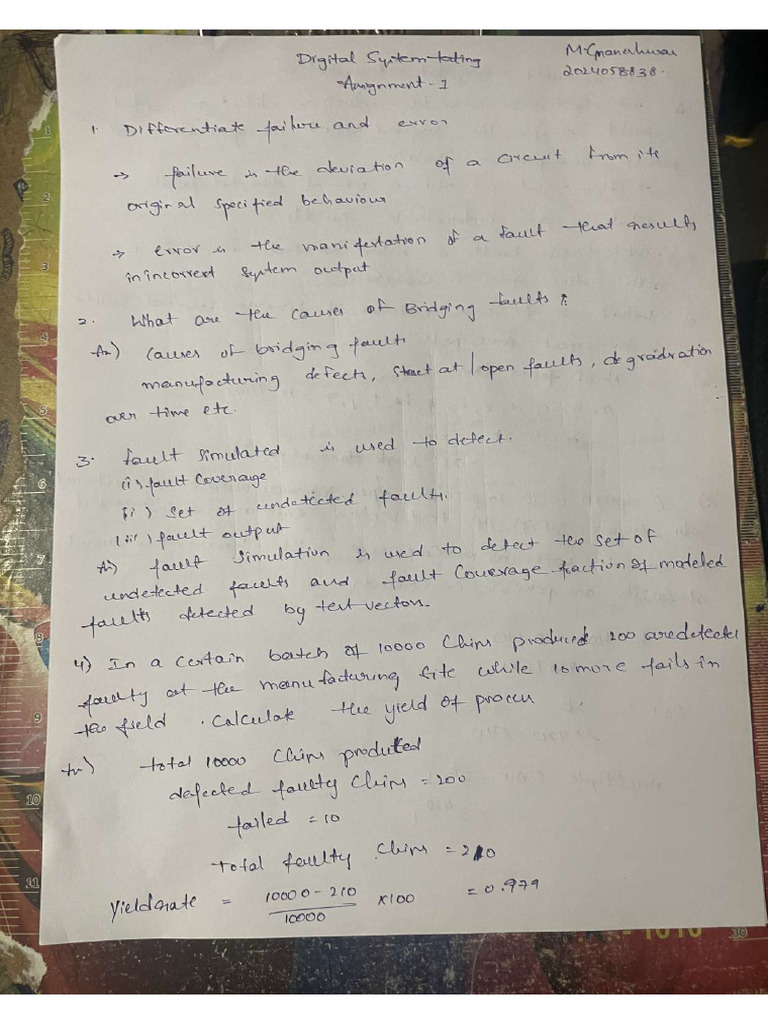 Digital System testing
M. Gnaneshwar
Assignment - 1
2024058838.
1. Differentiate failure and error
→ failure is the deviation of a circuit from its
original specified behaviour
→ error is the manifestation of a fault that results
in incorrect system output
2. What are the causes of Bridging faults?
An) Causes of bridging faults
manufacturing defects, Stuct at / open faults, degradration
over time etc.
3. fault simulated is used to detect.
(i) fault Coverage
(ii) set of undetected faults.
(iii) fault output
An) fault simulation is used to detect the set of
undetected faults and fault Coverage - fraction of modeled
faults detected by test vectors.
4) In a certain batch of 10000 Chips produced 200 are detected
faulty at the manufacturing site while 10 more fails in
the field. Calculate the yield of process
An) total 10000 Chips produced
defected faulty Chips = 200
failed = 10
total faulty Chips = 210
Yield rate = 10000 - 210 / 10000 x100 = 0.979
1
2
3
4
5
6
7
8
9
10
11
30